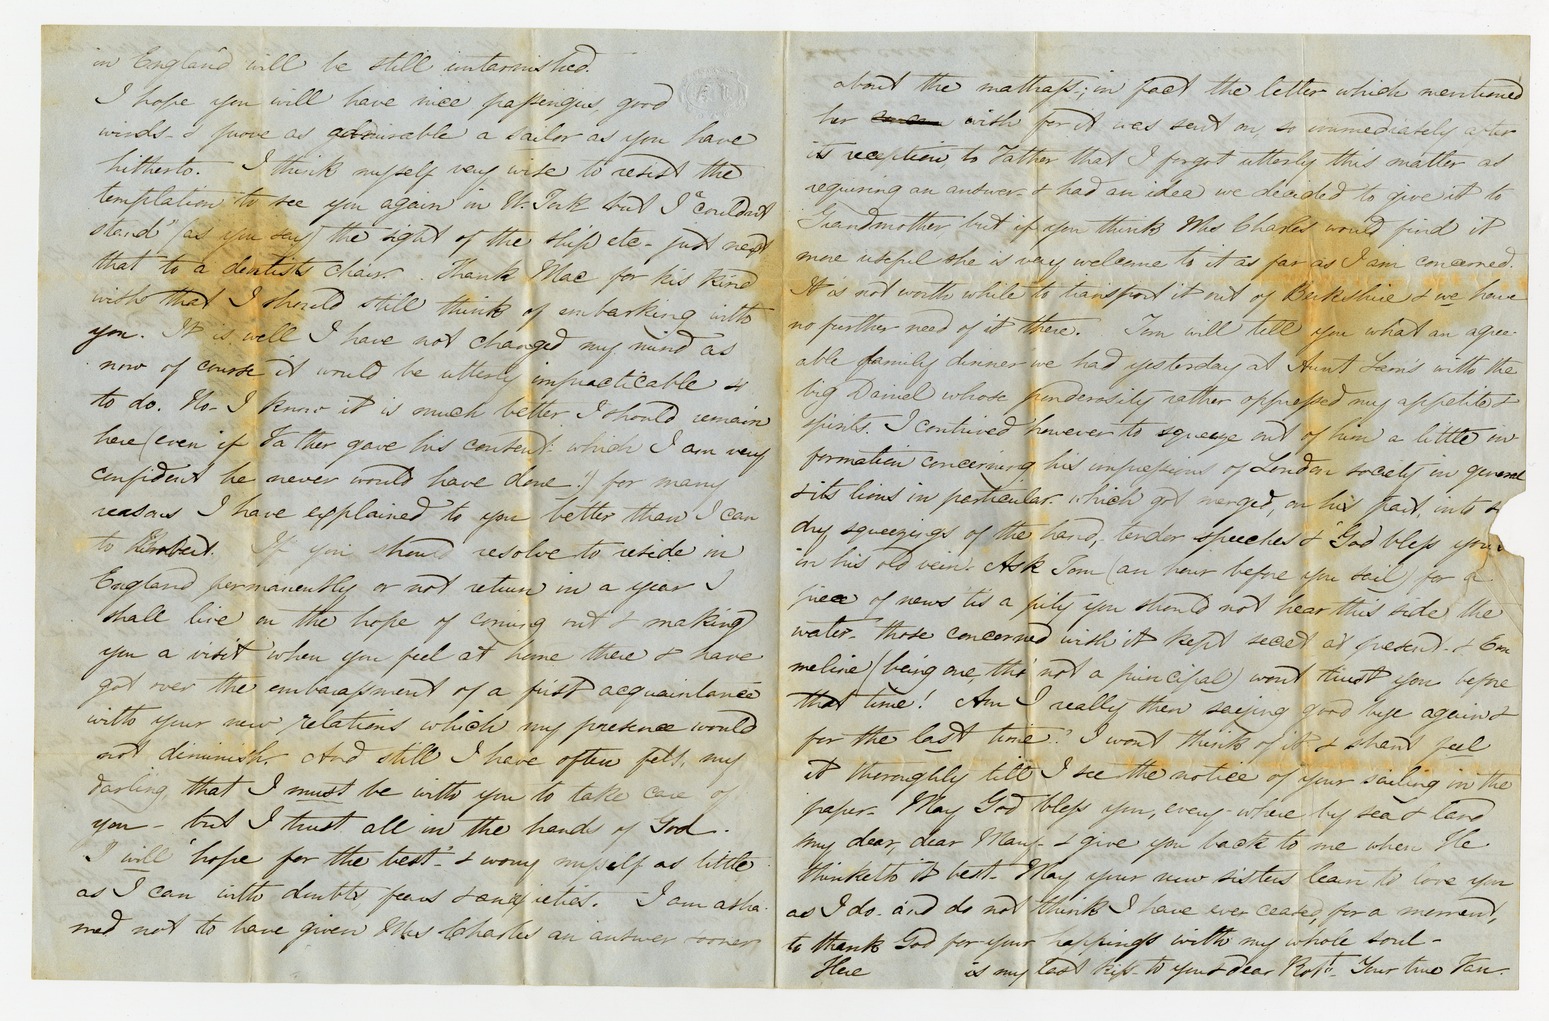 in England will be still untarnished.
I hope you will have nice passengers, good
winds & prove as admirable a sailor as you have
hitherto. I think myself very wise to resist the
temptation to see you again in N. York but I "couldn't
stand" as you say the sight of the ship etc- just next
that to a dentists chair. Thank Mac for his kind
wish that I should still think of embarking with
you. It is well I have not changed my mind as
now of course it would be utterly impracticable &
to do. No- I know it is much better I should remain
here (even if Father gave his consent! which I am very
confident he never would have done!) for many
reasons I have explained to you better than I can
to Robert. If you should resolve to reside in
England permanently or not return in a year I
shall live on the hope of coming out & making
you a visit when you feel at home there & have
got over the embarassment of a first acquaintance
with your new relations which my presence would
not diminish. And still I have often felt, my
darling, that I must be with you to take care of
you - but I trust all in the hands of God.
I will "hope for the best" & worry myself as little
as I can with doubts fears & anxieties. I am asha-
med not to have given Mrs Charles an answer sooner
about the mattrass; in fact the letter which mentioned
her wish for it was sent on so immediately after
its reception, to Father that I forgot utterly this matter as
requiring an answer & had an idea we decided to give it to
Grandmother but if you think Mrs Charles would find it
more useful she is very welcome to it as far as I am concerned.
It is not worth while to transport it out of Berkshire & we have
no further need of it there. Tom will tell you what an agree-
able family dinner we had yesterday at Aunt Sam's with the
big Daniel whose ponderosity rather oppressed my appetite &
spirits. I contrived however to squeeze out of him a little in
formation concerning his impressions of London society in general
& its lions in particular which got merged, on his part, into
dry squeezings of the hand, tender speeches & "God bless you's
in his old vein. Ask Tom (an hour before you sail) for a
piece of news tis a pity you should not hear this side the
water- those concerned wish it kept secret at present- & Em
meline (being one, tho' not a principal) wont trust you before
that time! Am I really then saying good bye again &
for the last time? I wont think of it & shant feel
it thoroughly till I see the notice of your sailing in the
paper- May God bless you, every-where by sea & land
my dear, dear Mary- & give you back to me when He
thinketh it best- May your new sisters learn to love you
as I do- and do not think I have ever ceased, for a moment,
to thank God for your happiness with my whole soul-
Here is my last kiss- to you & dear Robt- Your true Fan-